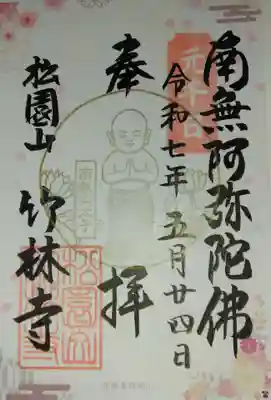 南無阿弥陀佛
令和七年五月廿四日
奉拝
松園山 竹林寺